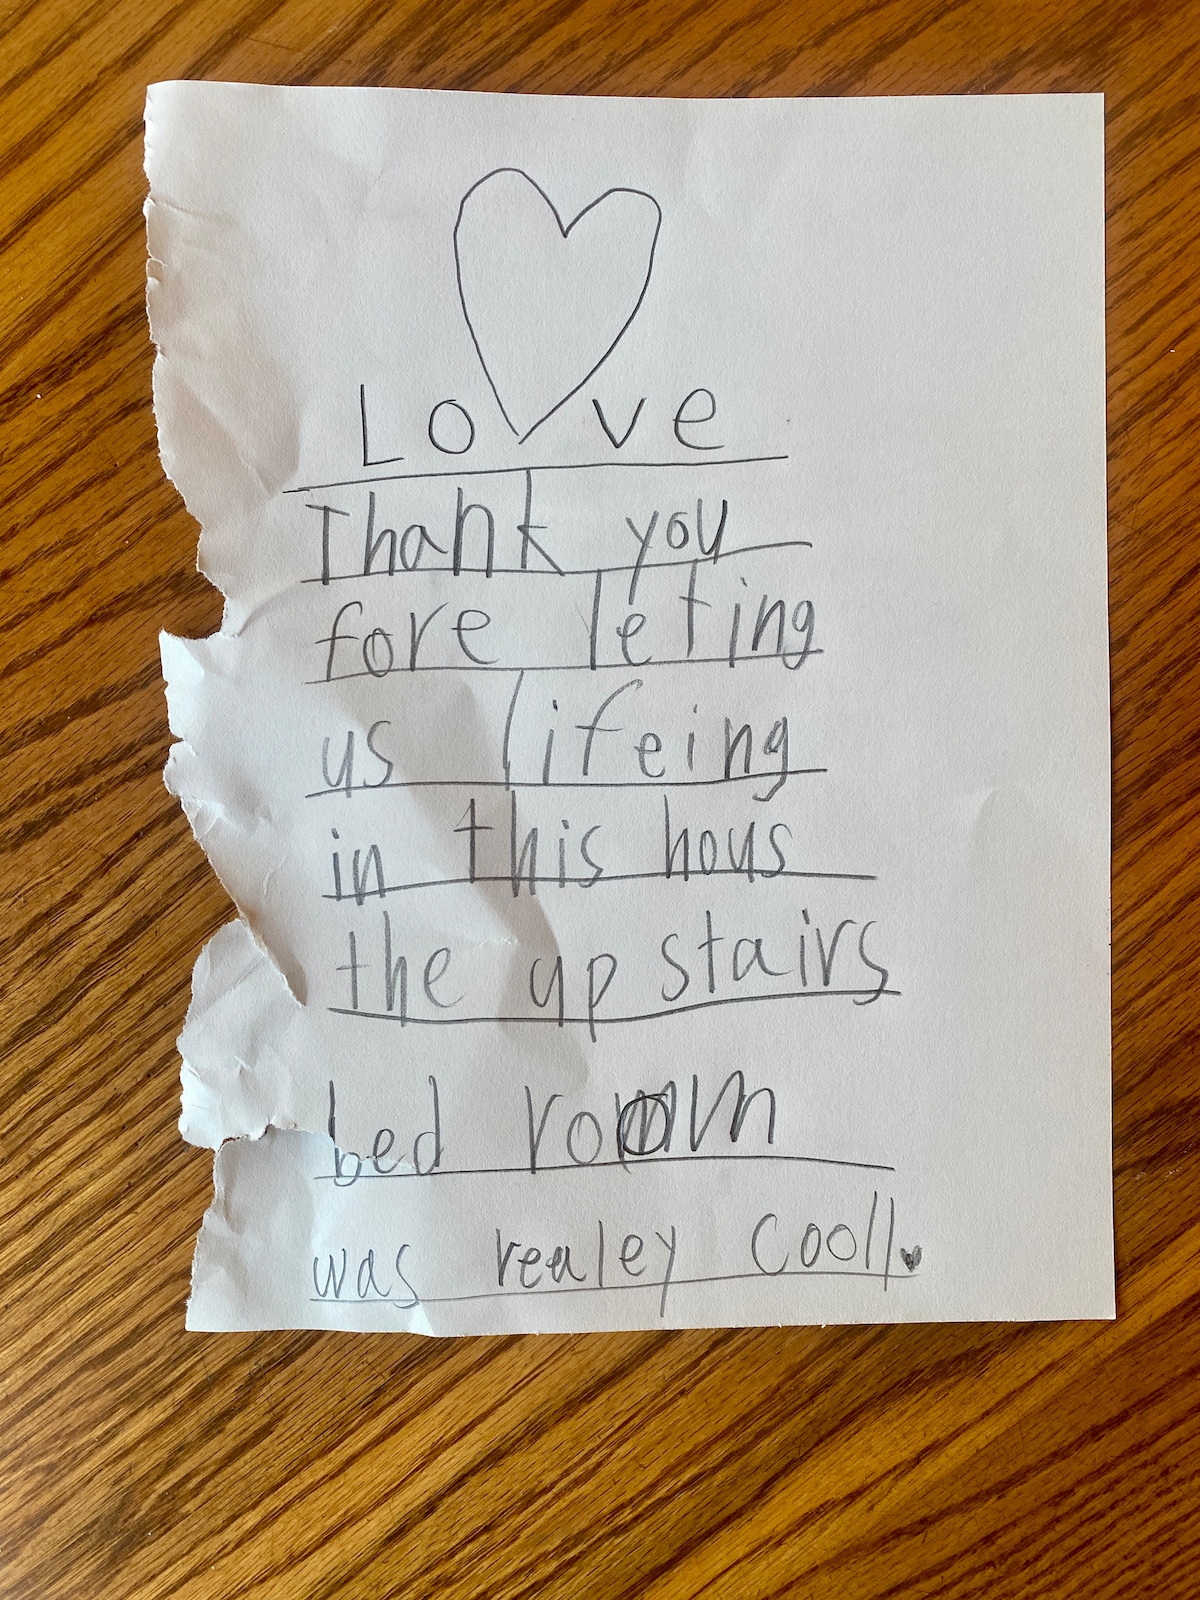 Love
Thank you
fore leting
us lifeing
in this hous
the up stairs
bed room
was realey cooll